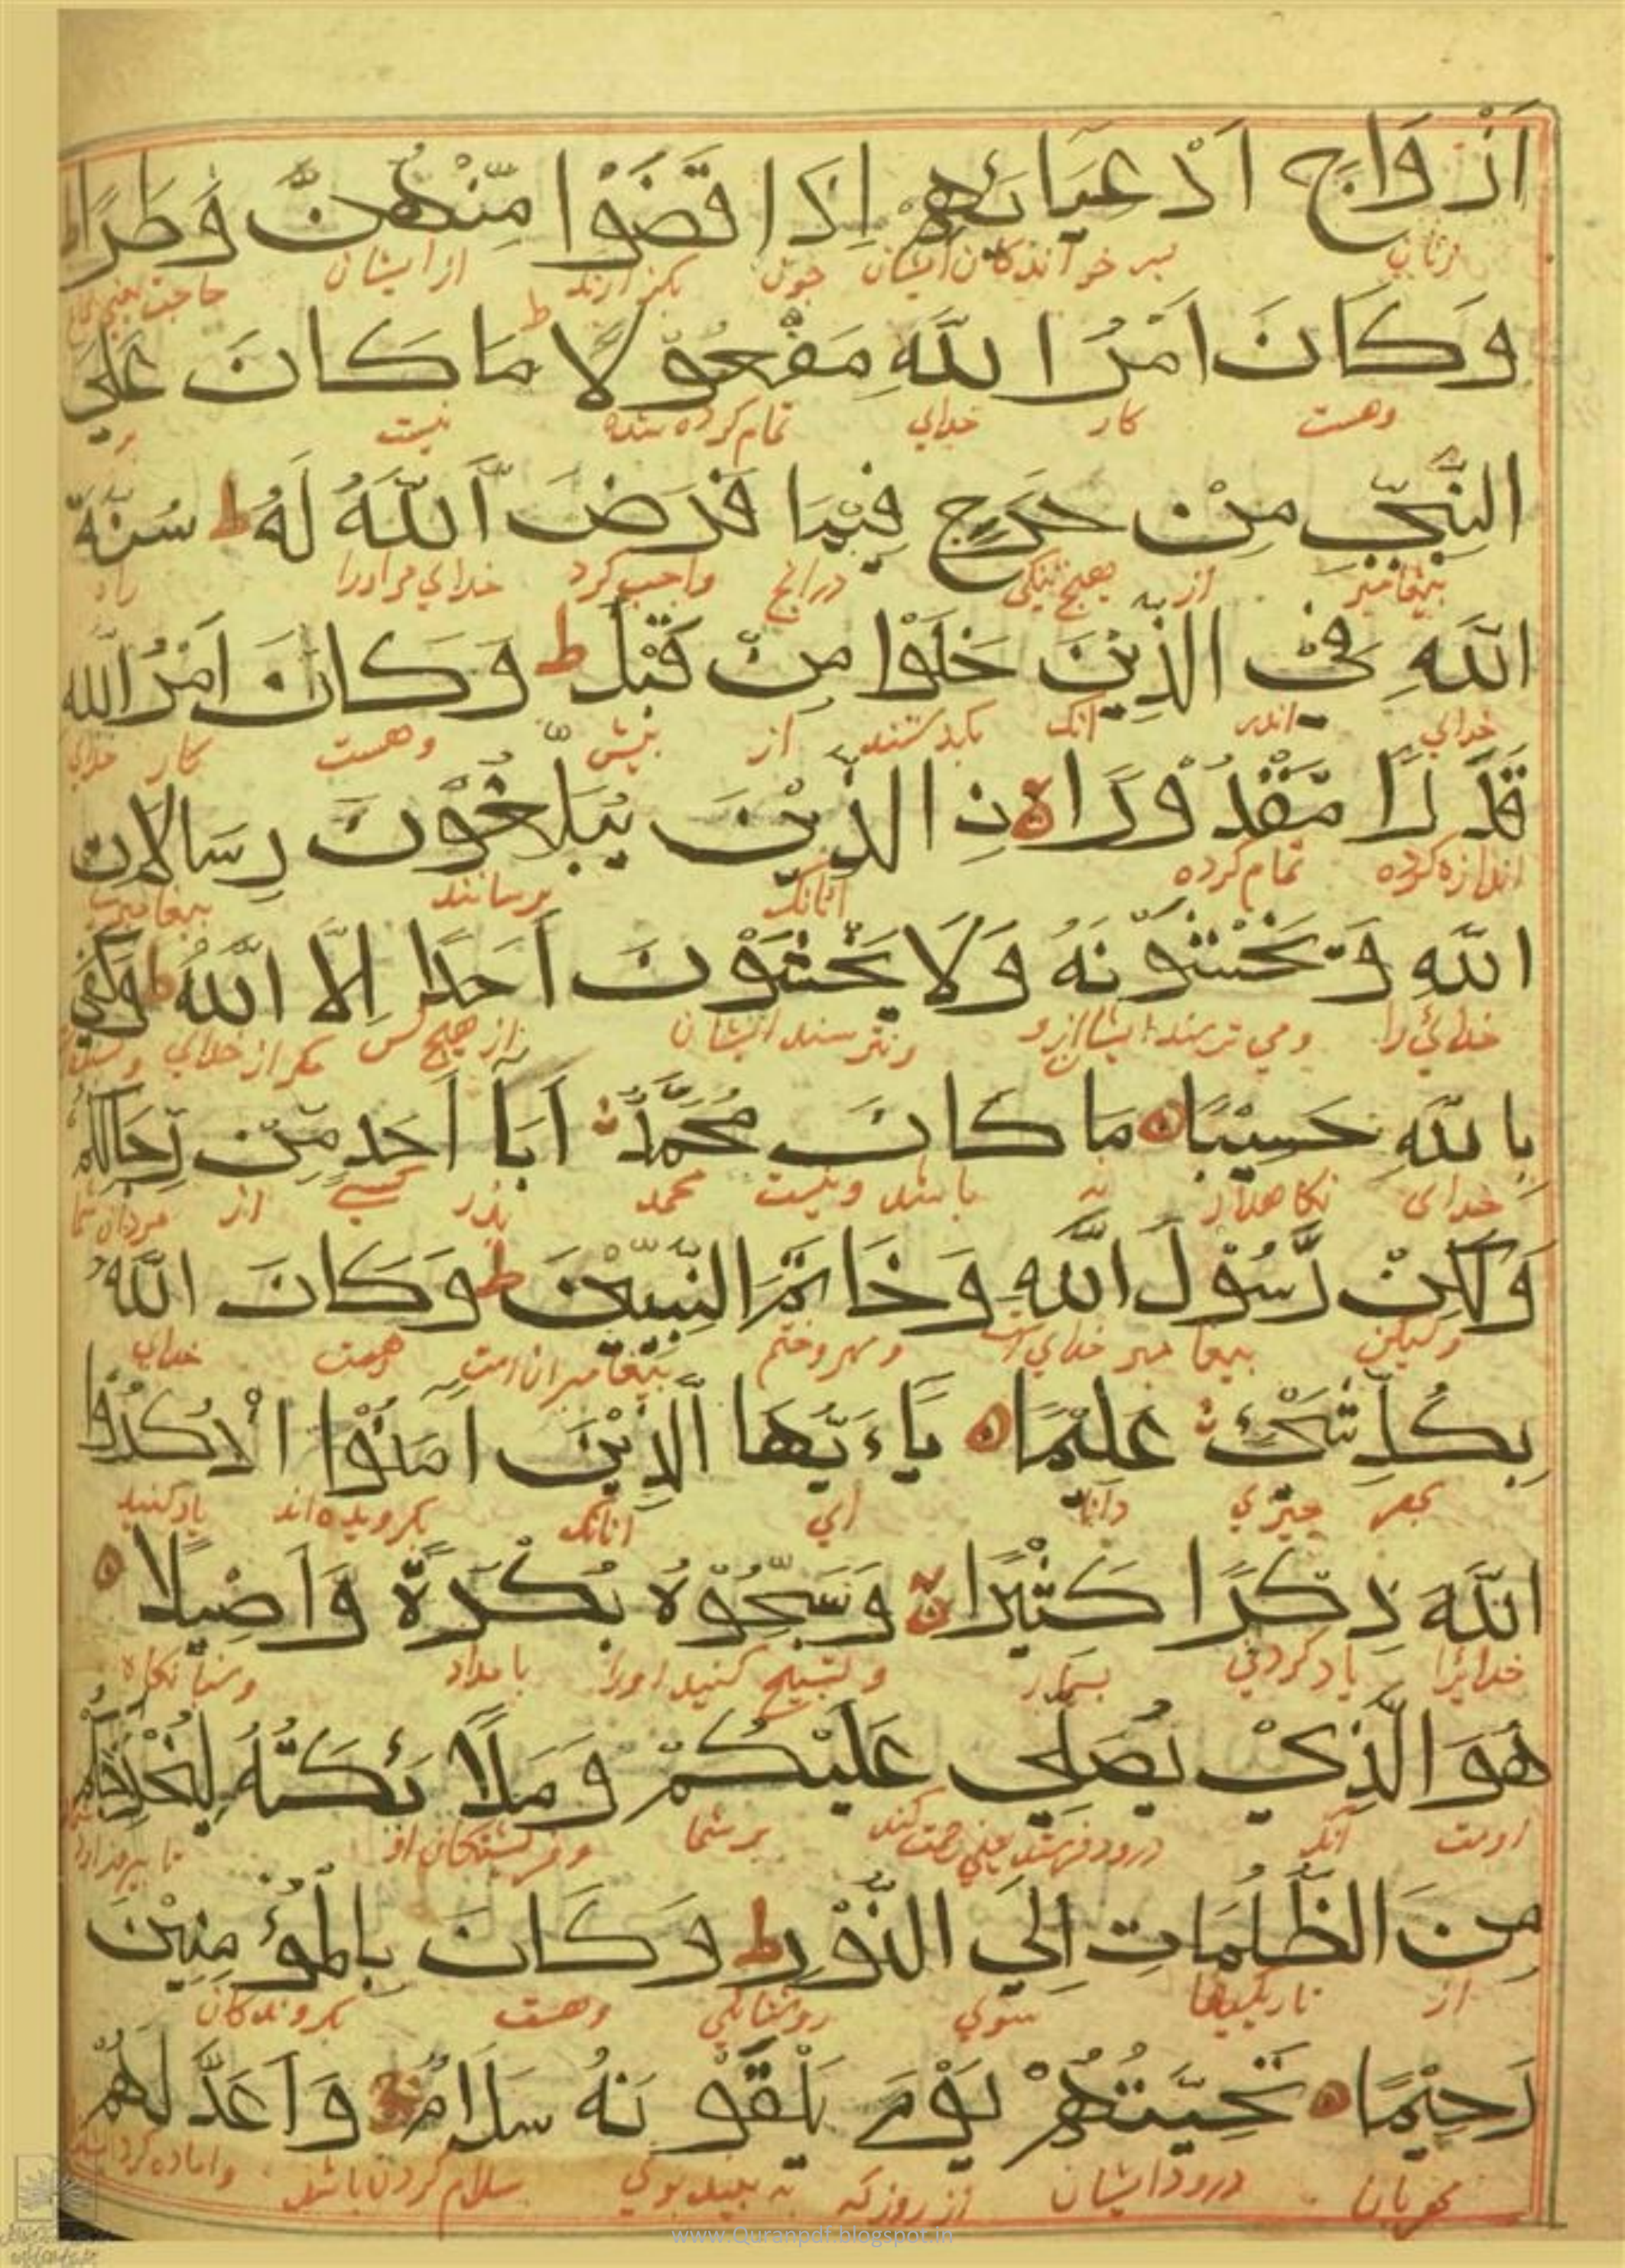 اَزْوَاجِ اَدْعِيَائِهِمْ اِذَا قَضَوْا مِنْهُنَّ وَطَرًا ط
زنان پسر خواندگان ایشان چون بگزارند از ایشان حاجت
وَكَانَ اَمْرُ اللّٰهِ مَفْعُوْلًا ط مَا كَانَ عَلَى
وهست کار خدای تمام کرده شده نیست بر
النَّبِيِّ مِنْ حَرَجٍ فِيْمَا فَرَضَ اللّٰهُ لَهُ ط سُنَّةَ
پیغامبر از هیچ تنگی درانچ واجب کرد خدای مراورا راه
اللّٰهِ فِيْ الَّذِيْنَ خَلَوْا مِنْ قَبْلُ ط وَكَانَ اَمْرُ اللّٰهِ
خدای اندر انک بگذشتند از پیش وهست کار خدای
قَدَرًا مَّقْدُوْرًا نِ الَّذِيْنَ يُبَلِّغُوْنَ رِسَالَاتِ
اندازه کرده تمام کرده آنانک برسانند
اللّٰهِ وَيَخْشَوْنَهُ وَلَا يَخْشَوْنَ اَحَدًا اِلَّا اللّٰهَ ط وَكَفٰى
خدائی را ومی ترسند ایشان ازو ونترسند ایشان از هیچ کس مکر از خدای
بِاللّٰهِ حَسِيْبًا مَا كَانَ مُحَمَّدٌ اَبَآ اَحَدٍ مِّنْ رِّجَالِكُمْ
خدای نکاهدار نه باشد ونیست محمد پذر کسی از مردان شما
وَلٰكِنْ رَّسُوْلَ اللّٰهِ وَخَاتَمَ النَّبِيّٖنَ ط وَكَانَ اللّٰهُ
ولیکن پیغامبر خدای است ومهر وختم پیغامبران است وهست خدای
بِكُلِّ شَيْءٍ عَلِيْمًا يَاءَيُّهَا الَّذِيْنَ اٰمَنُوْا اذْكُرُوا
بهر چیزی دانا ای آنانک بکرویده اند یاد کنید
اللّٰهَ ذِكْرًا كَثِيْرًا وَسَبِّحُوْهُ بُكْرَةً وَاَصِيْلًا
خدایرا یاد کردنی بسیار وتسبیح کنید اورا بامداد وشبانکاه
هُوَ الَّذِيْ يُصَلِّي عَلَيْكُمْ وَمَلَائِكَتُهُ لِيُخْرِجَكُمْ
اوست آنک درود فرستد یعنی رحمت کند بر شما وفریشتکان او
مِنَ الظُّلُمَاتِ اِلَى النُّوْرِ ط وَكَانَ بِالْمُؤْمِنِيْنَ
از تاریکیها سوی روشنائی وهست بکروندکان
رَحِيْمًا تَحِيَّتُهُمْ يَوْمَ يَلْقَوْنَهُ سَلَامٌ وَاَعَدَّ لَهُمْ
مهربان درود ایشان از روز که سلام کردن باشد واماده کرد
www.Quranpdf.blogspot.in